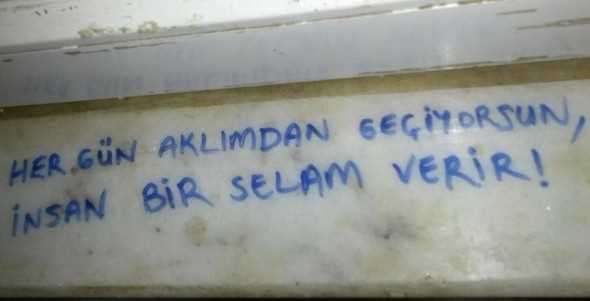 HER GÜN AKLIMDAN GEÇİYORSUN,
İNSAN BİR SELAM VERİR!